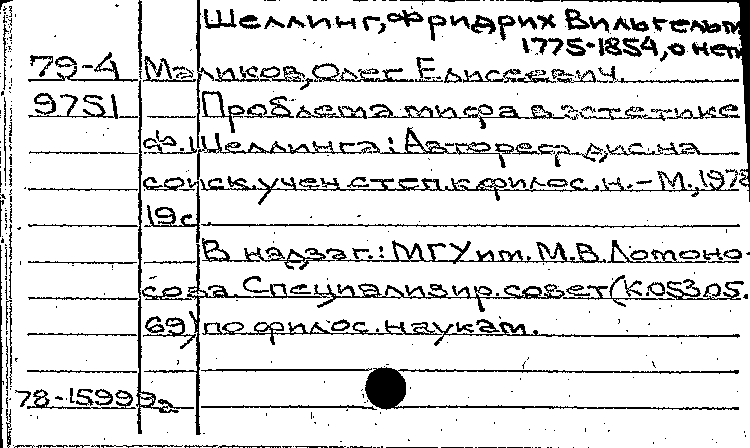 Шеллинг, Фридрих Вильгельм
1775-1854, о нем
79-4 Маликов, Олег Елисеевич.
9751 Проблема мифа в эстетике
Ф. Шеллинга: Автореф. дис. на
соиск. учен. степ. к. филос. н. - М., 1978
19 с.
В надзаг.: МГУ им. М.В. Ломоно-
сова. Специализир. совет (К.053.05.
69) по филос. наукам.
78-15999а